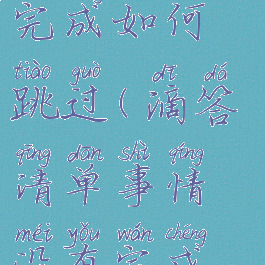 完成如何
tiào guò dī dá
跳过(滴答
qīng dān shì qíng
清单事情
méi yǒu wán chéng
没有完成